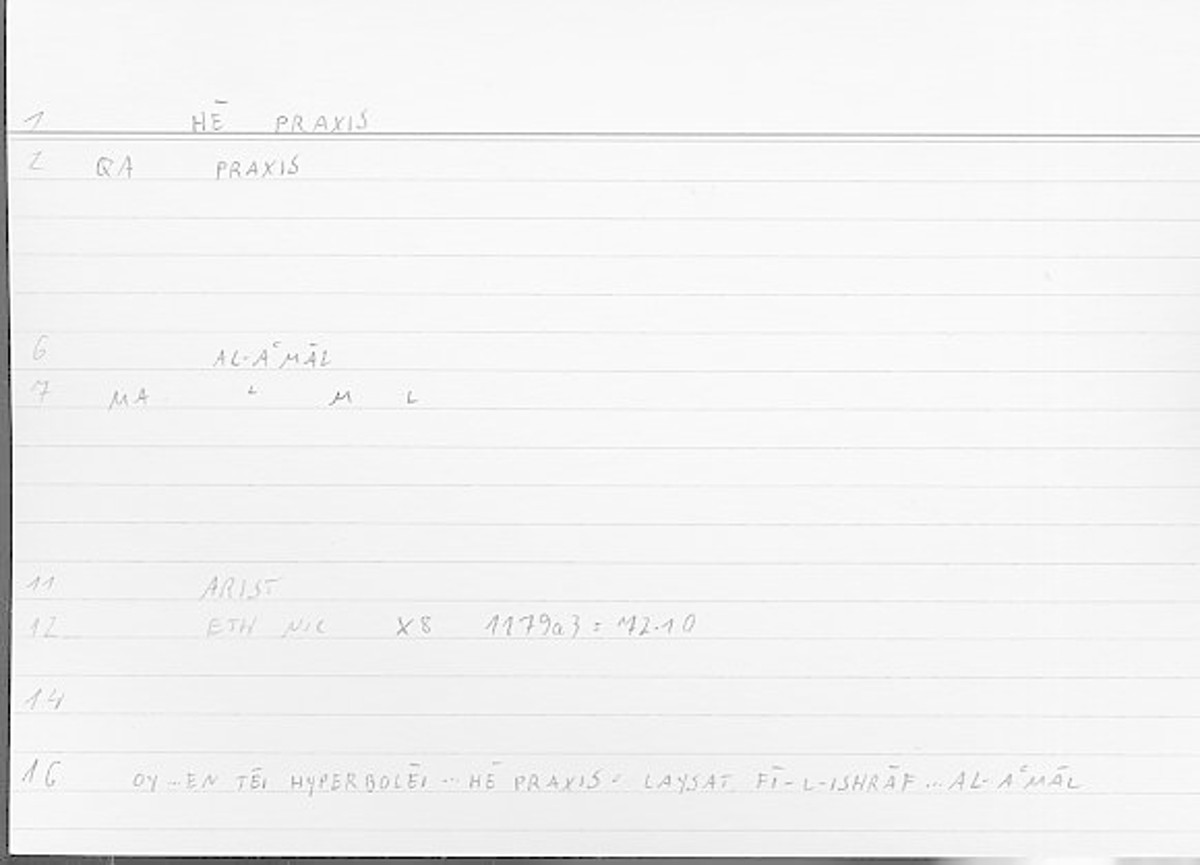 1 HĒ PRAXIS
2 QA PRAXIS
6 AL-AʿMĀL
7 MA ʿ M L
11 ARIST
12 ETH NIC X8 1179a3 = 72.10
14
16 OY...EN TĒI HYPERBOLĒI...HĒ PRAXIS = LAYSAT FĪ-L-ISHRĀF...AL-AʿMĀL